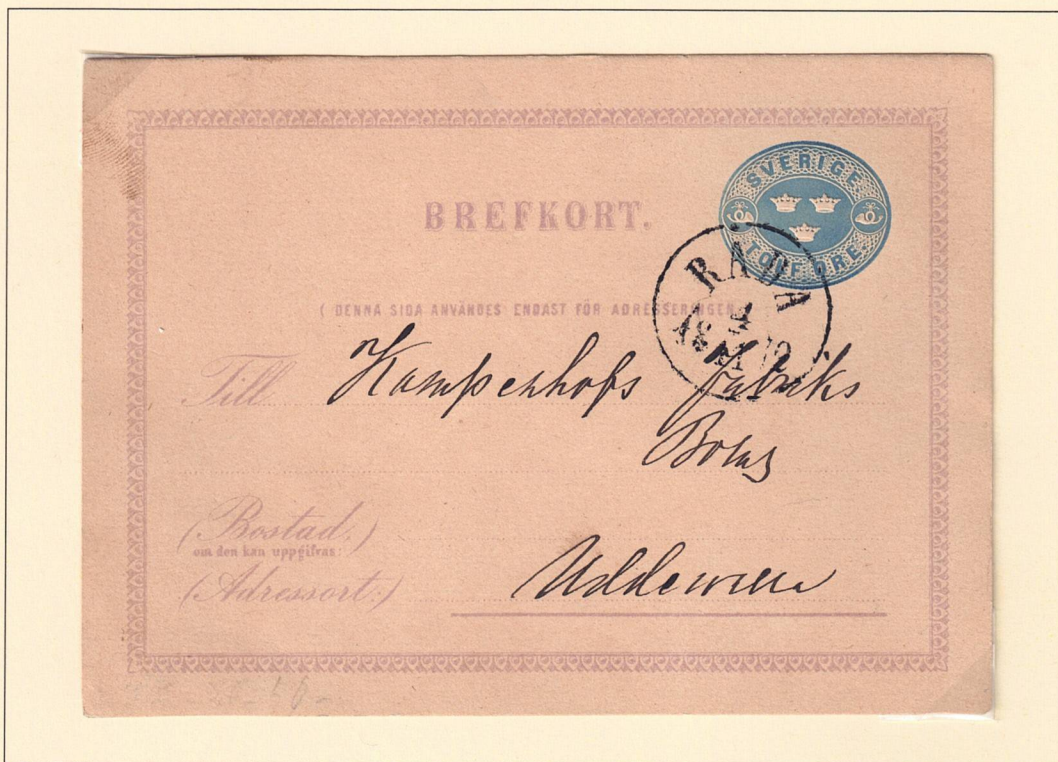 SVERIGE
TOLF ÖRE
BREFKORT.
RÅDA
( DENNA SIDA ANVÄNDES ENDAST FÖR ADRESSERINGEN.
Till Kampenhofs fabriks
Bolag
(Bostad.)
om den kan uppgifvas:
(Adressort:) Uddewalla